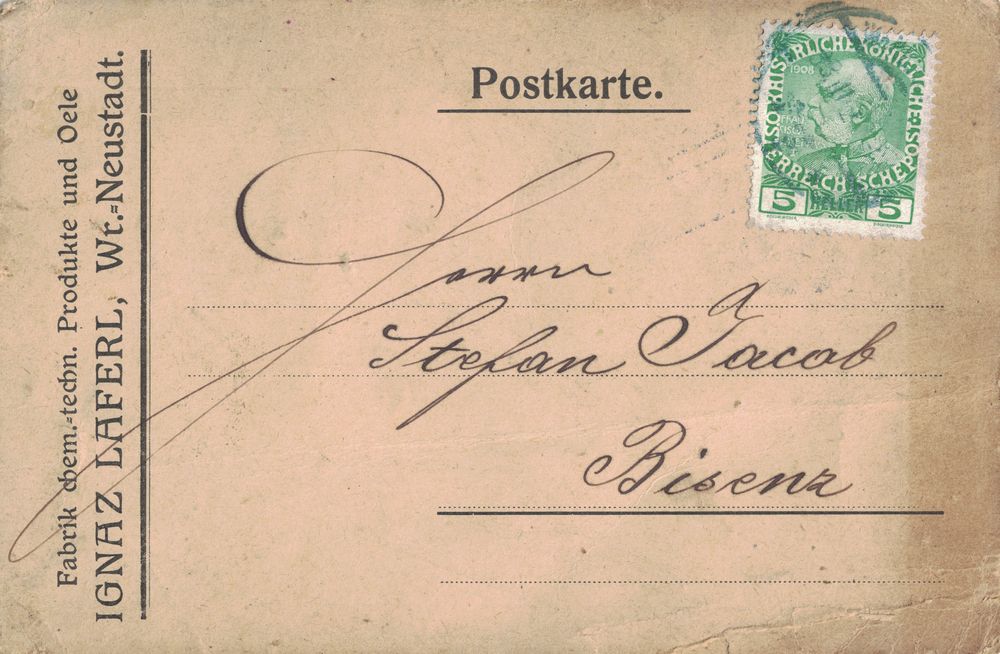 Fabrik chem.-techn. Produkte und Oele
IGNAZ LAFERL, Wr.-Neustadt.
Postkarte.
KAISERLICHE KÖNIGLICHE
ÖSTERREICHISCHE POST
1908
5 HELLER 5
Herrn
Stefan Jacob
Bisenz